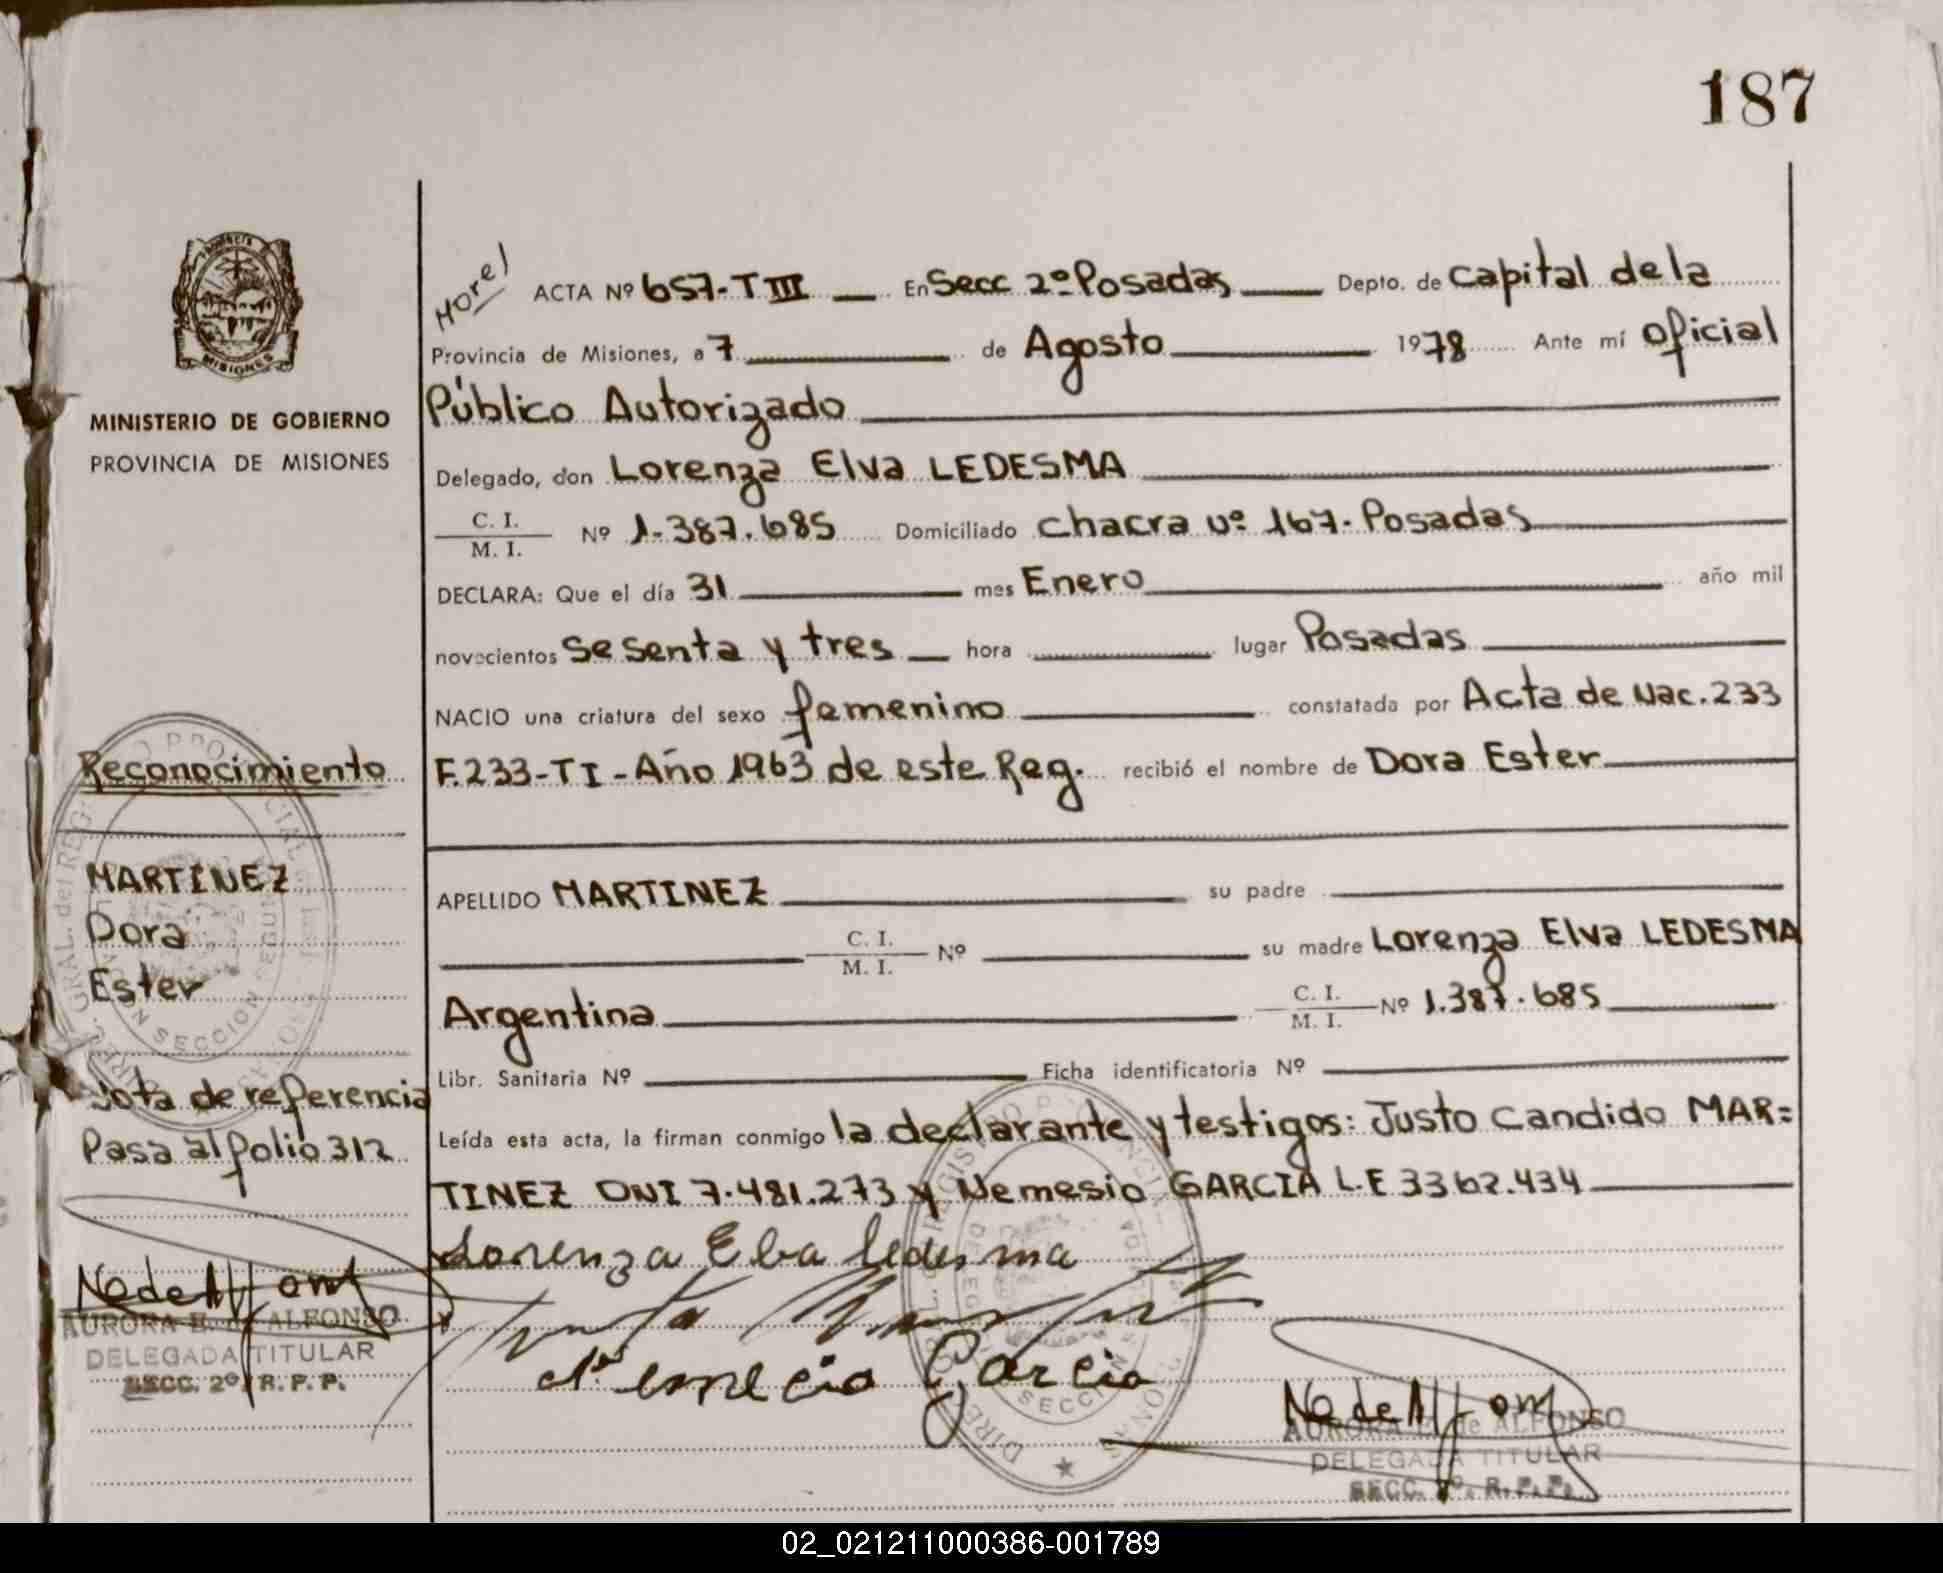 187
ACTA Nº 657-TIII En Secc 2º Posadas Depto. de Capital de la
Provincia de Misiones, a 7 de Agosto 1978 Ante mí Oficial
Público Autorizado
MINISTERIO DE GOBIERNO
PROVINCIA DE MISIONES
Delegado, don Lorenza Elva LEDESMA
C. I.
M. I. Nº 1.387.685 Domiciliado chacra nº 167-Posadas
DECLARA: Que el día 31 mes Enero año mil
novecientos sesenta y tres hora lugar Posadas
NACIO una criatura del sexo femenino constatada por Acta de Nac. 233
F.233-TI-Año 1963 de este Reg. recibió el nombre de Dora Ester
Reconocimiento
MARTINEZ
Dora
Ester
APELLIDO MARTINEZ su padre
C. I.
M. I. Nº su madre Lorenza Elva LEDESMA
Argentina C. I.
M. I. Nº 1.387.685
Libr. Sanitaria Nº Ficha identificatoria Nº
Nota de referencia
Pasa al folio 312
Leída esta acta, la firman conmigo la declarante y testigos: Justo Candido MAR=
TINEZ DNI 7.481.273 y Nemesio GARCIA L.E 3362.434
Lorenza Elba ledesma
Nemecio Garcia
AURORA de ALFONSO
DELEGADA TITULAR
SECC. 2º. R. P. P.
AURORA de ALFONSO
DELEGADA TITULAR
SECC. 2º. R. P. P.
02_021211000386-001789